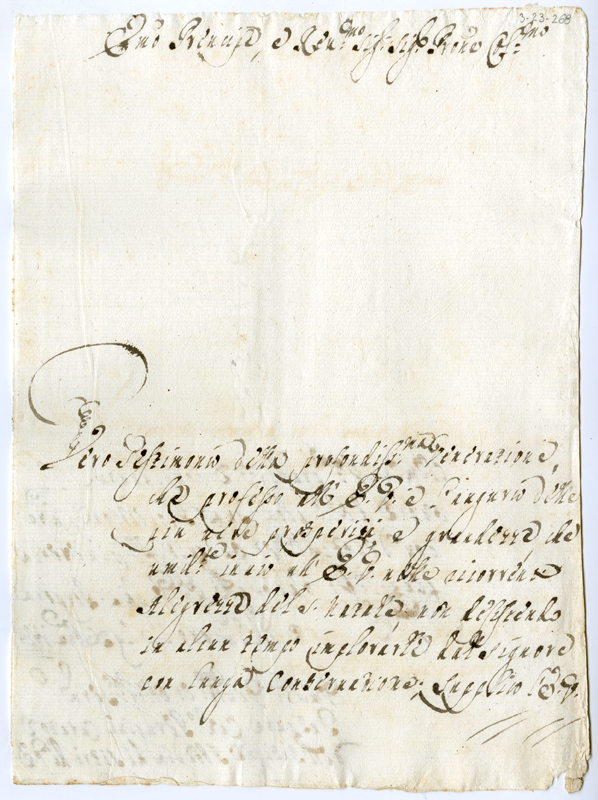 3-23-268
Emo Principe, e Revmo Sigr Sigr Prone Colmo
Vero Testimonio della profondissima Venerazione,
che professo all' E. V. è l'augurio delle
più vere prosperità, e grandezze che
umilte invio all' E. V. nelle ricorrenti
Alegrezze del S. Natale, non desistendo
in alcun tempo implorarle dal Signore
con lunga Conservazione; Supplico l'E. V.